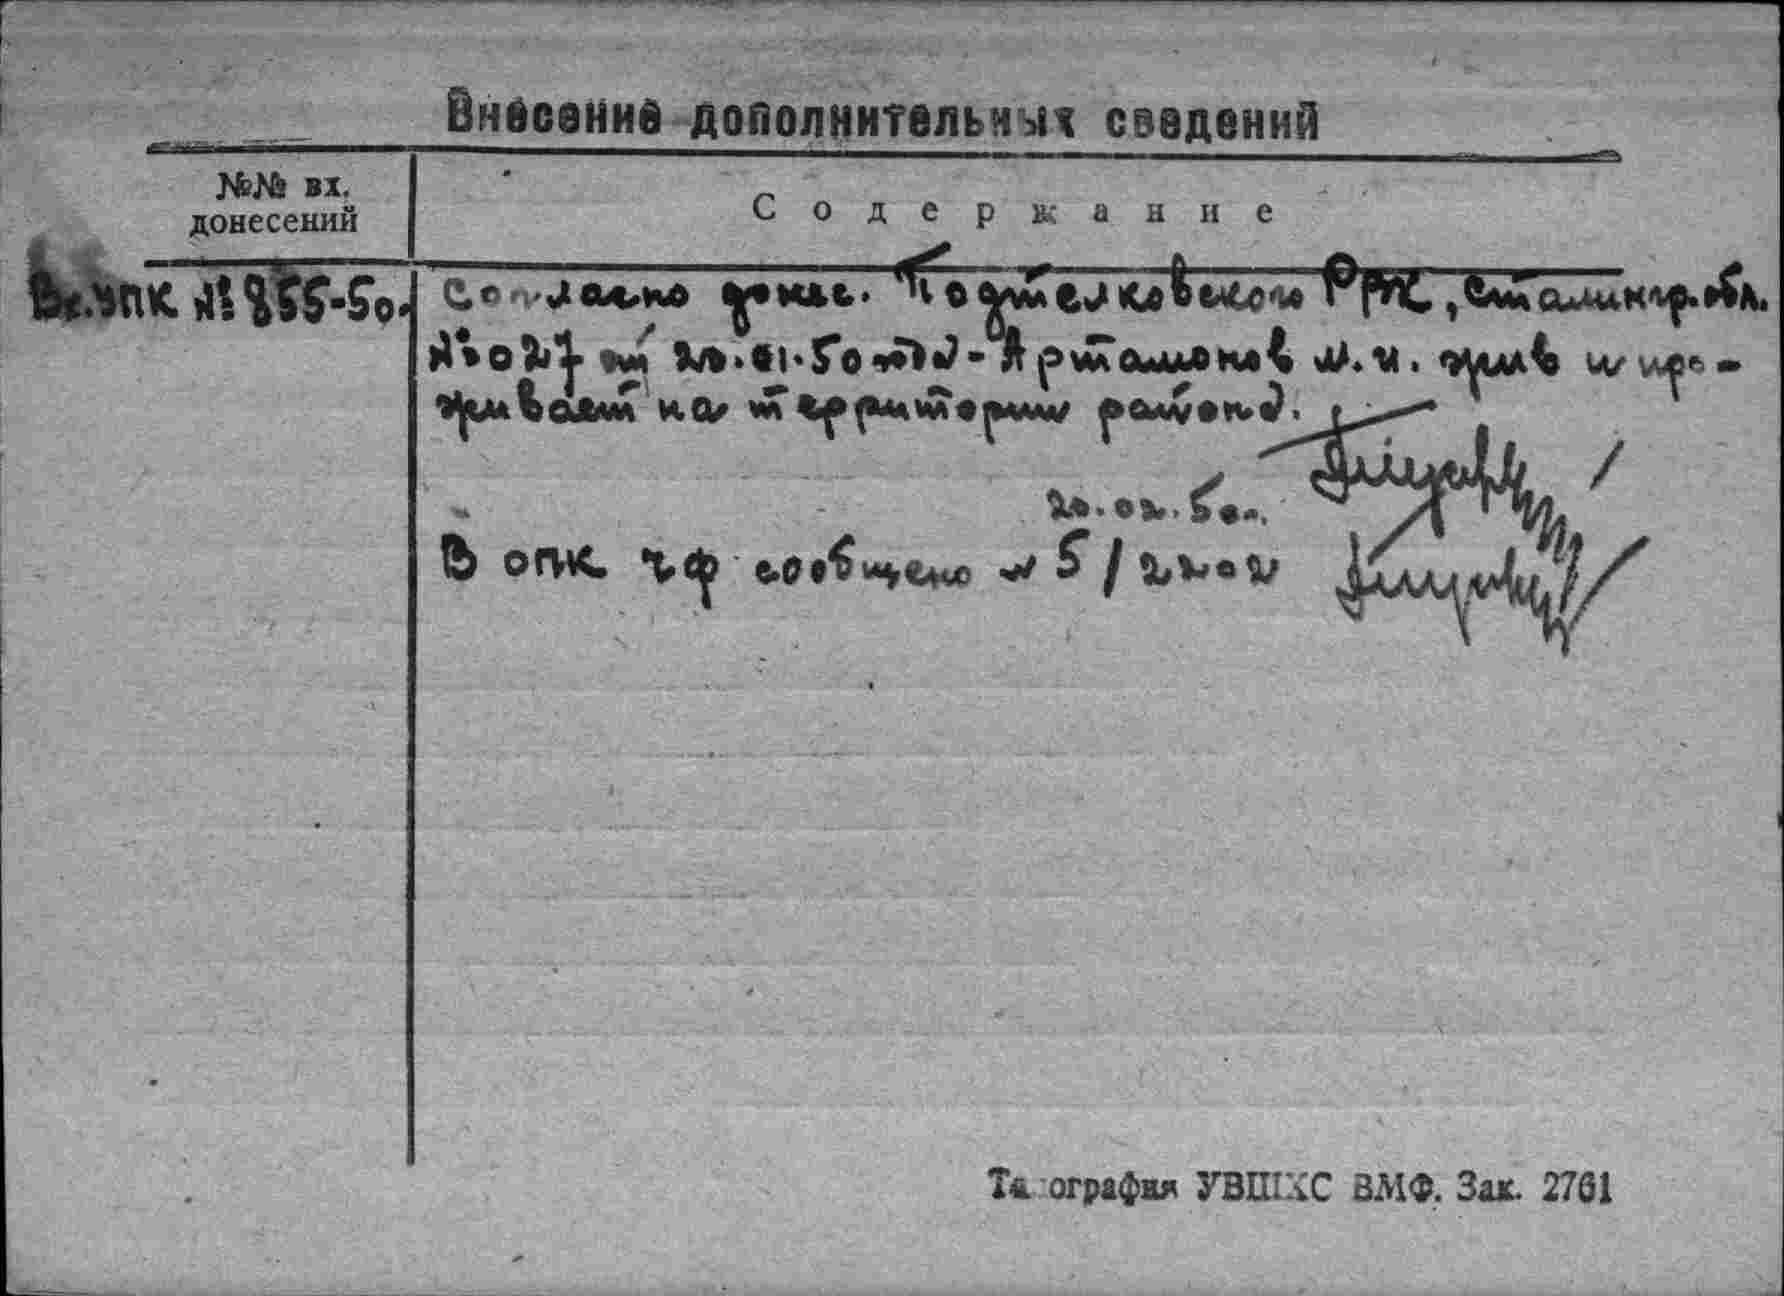 Внесение дополнительных сведений
№№ вх.
донесений
Содержание
Вх. УПК № 855-50.
Согласно донес. Подтелковского РВК, Сталингр. обл.
от 20.01.50 - Артамонов М. И. жив и про-
живает на территории района.
20.02.50.
В ОПК ЧФ сообщено
Типография УВШКС ВМФ. Зак. 2761